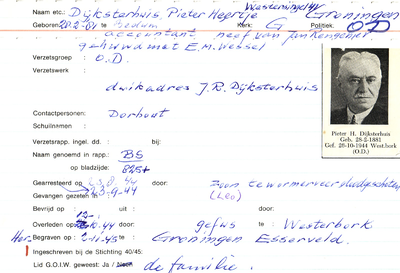 Westersingel 44
Naam etc.: Dijksterhuis, Pieter Heertje Groningen
Geboren: 28-2-'81 te Bedum Kerk: G Politiek: OD
accountant neef van
gehuwd met E.M. Wessel
Verzetsgroep : O.D.
dwikadres J.R. Dijksterhuis
Contactpersonen: Dorhout
Schuilnamen :
Verzetsrapp. ingel. dd. : bij:
Naam genoemd in rapp.: BS
op bladzijde: 825+
Gearresteerd op door: zoon te Wormerveer doodgeschoten
Gevangen gezeten in 23.9.44 (Leo)
Bevrijd op : uit : door:
12-
Overleden op 10.44 door: gefus te Westerbork
Her Begraven op : 2-11-45 te: Groningen Esserveld.
Ingeschreven bij de Stichting 40/45:
Lid G.O.I.W. geweest: Ja / Neen de familie.
Pieter H. Dijksterhuis
Geb. 28-2-1881
Gef. 20-10-1944 West.bork
(O.D.)